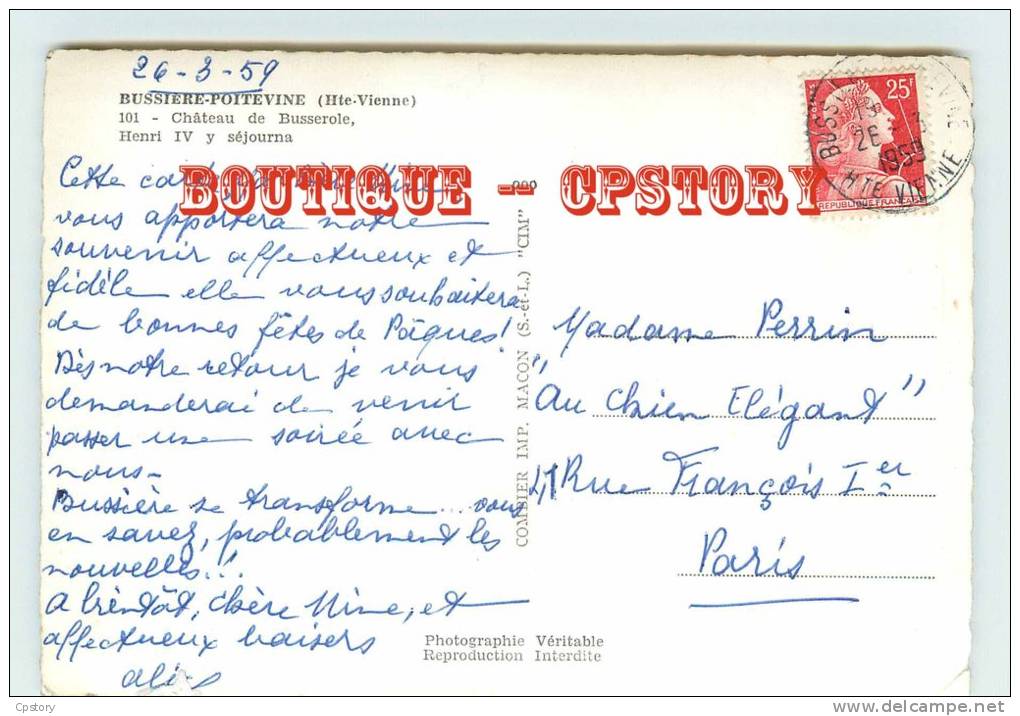 26-3-59
BUSSIERE-POITEVINE (Hte-Vienne)
101 - Château de Busserole,
Henri IV y séjourna
Cette
BOUTIQUE - CPSTORY
vous apportera notre
souvenir affectueux et
fidèle elle vous souhaitera
de bonnes fêtes de Pâques!
Dès notre retour je vous
demanderai de venir
passer une soirée avec
nous-
Bussière se transforme... vous
en savez, probablement les
nouvelles!..
A bientôt, chère Mine, et
affectueux baisers
COMBIER IMP. MACON (S.-et-L.) "CIM"
25F
REPUBLIQUE FRANCAISE
19
26 - 3
1959
HTE VIENNE
Madame Perrin
"Au Chien Elégant"
Rue François Ier
Paris
Photographie Véritable
Reproduction Interdite
Cpstory
www.delcampe.net